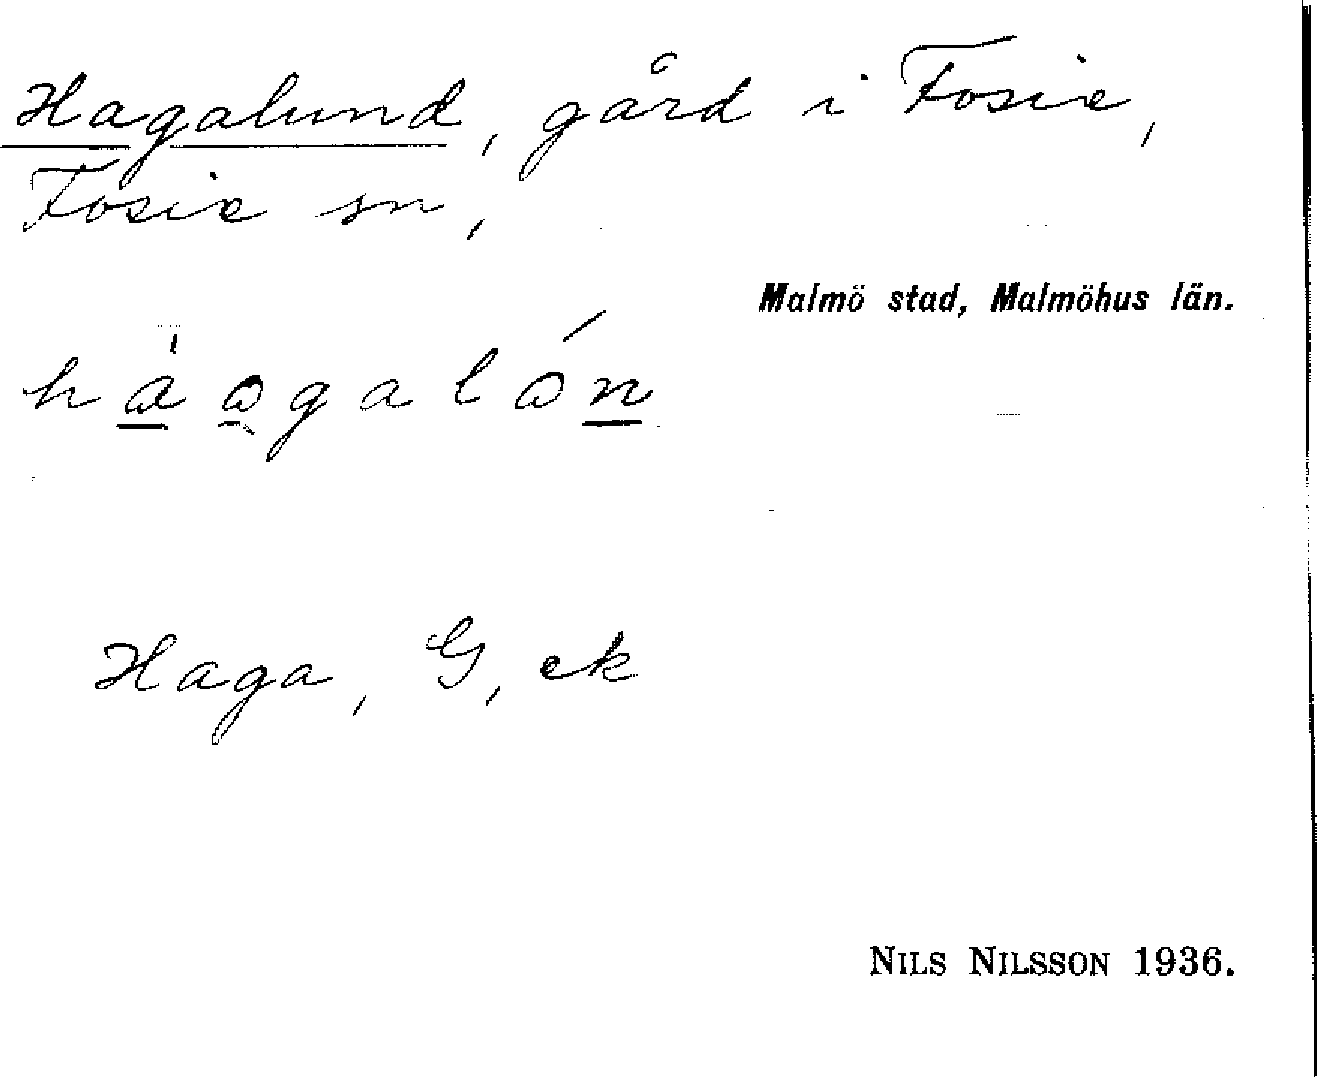 Hagalund, gård i Fosie,
Fosie sn,
Malmö stad, Malmöhus län.
Haga, G, ek
NILS NILSSON 1936.